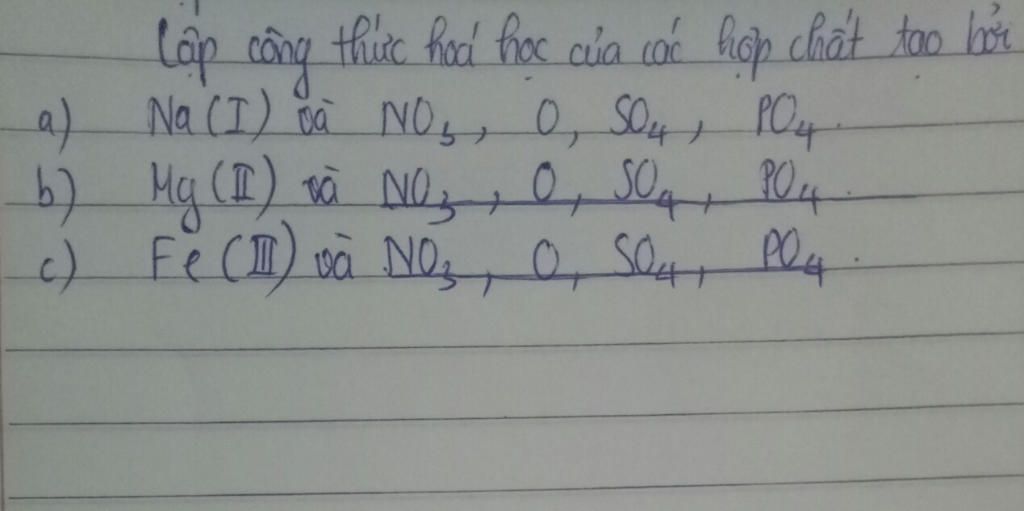 Lập công thức hoá học của các hợp chất tạo bởi
a) Na (I) và NO₃, O, SO₄, PO₄.
b) Mg (II) và NO₃, O, SO₄, PO₄.
c) Fe (III) và NO₃, O, SO₄, PO₄.